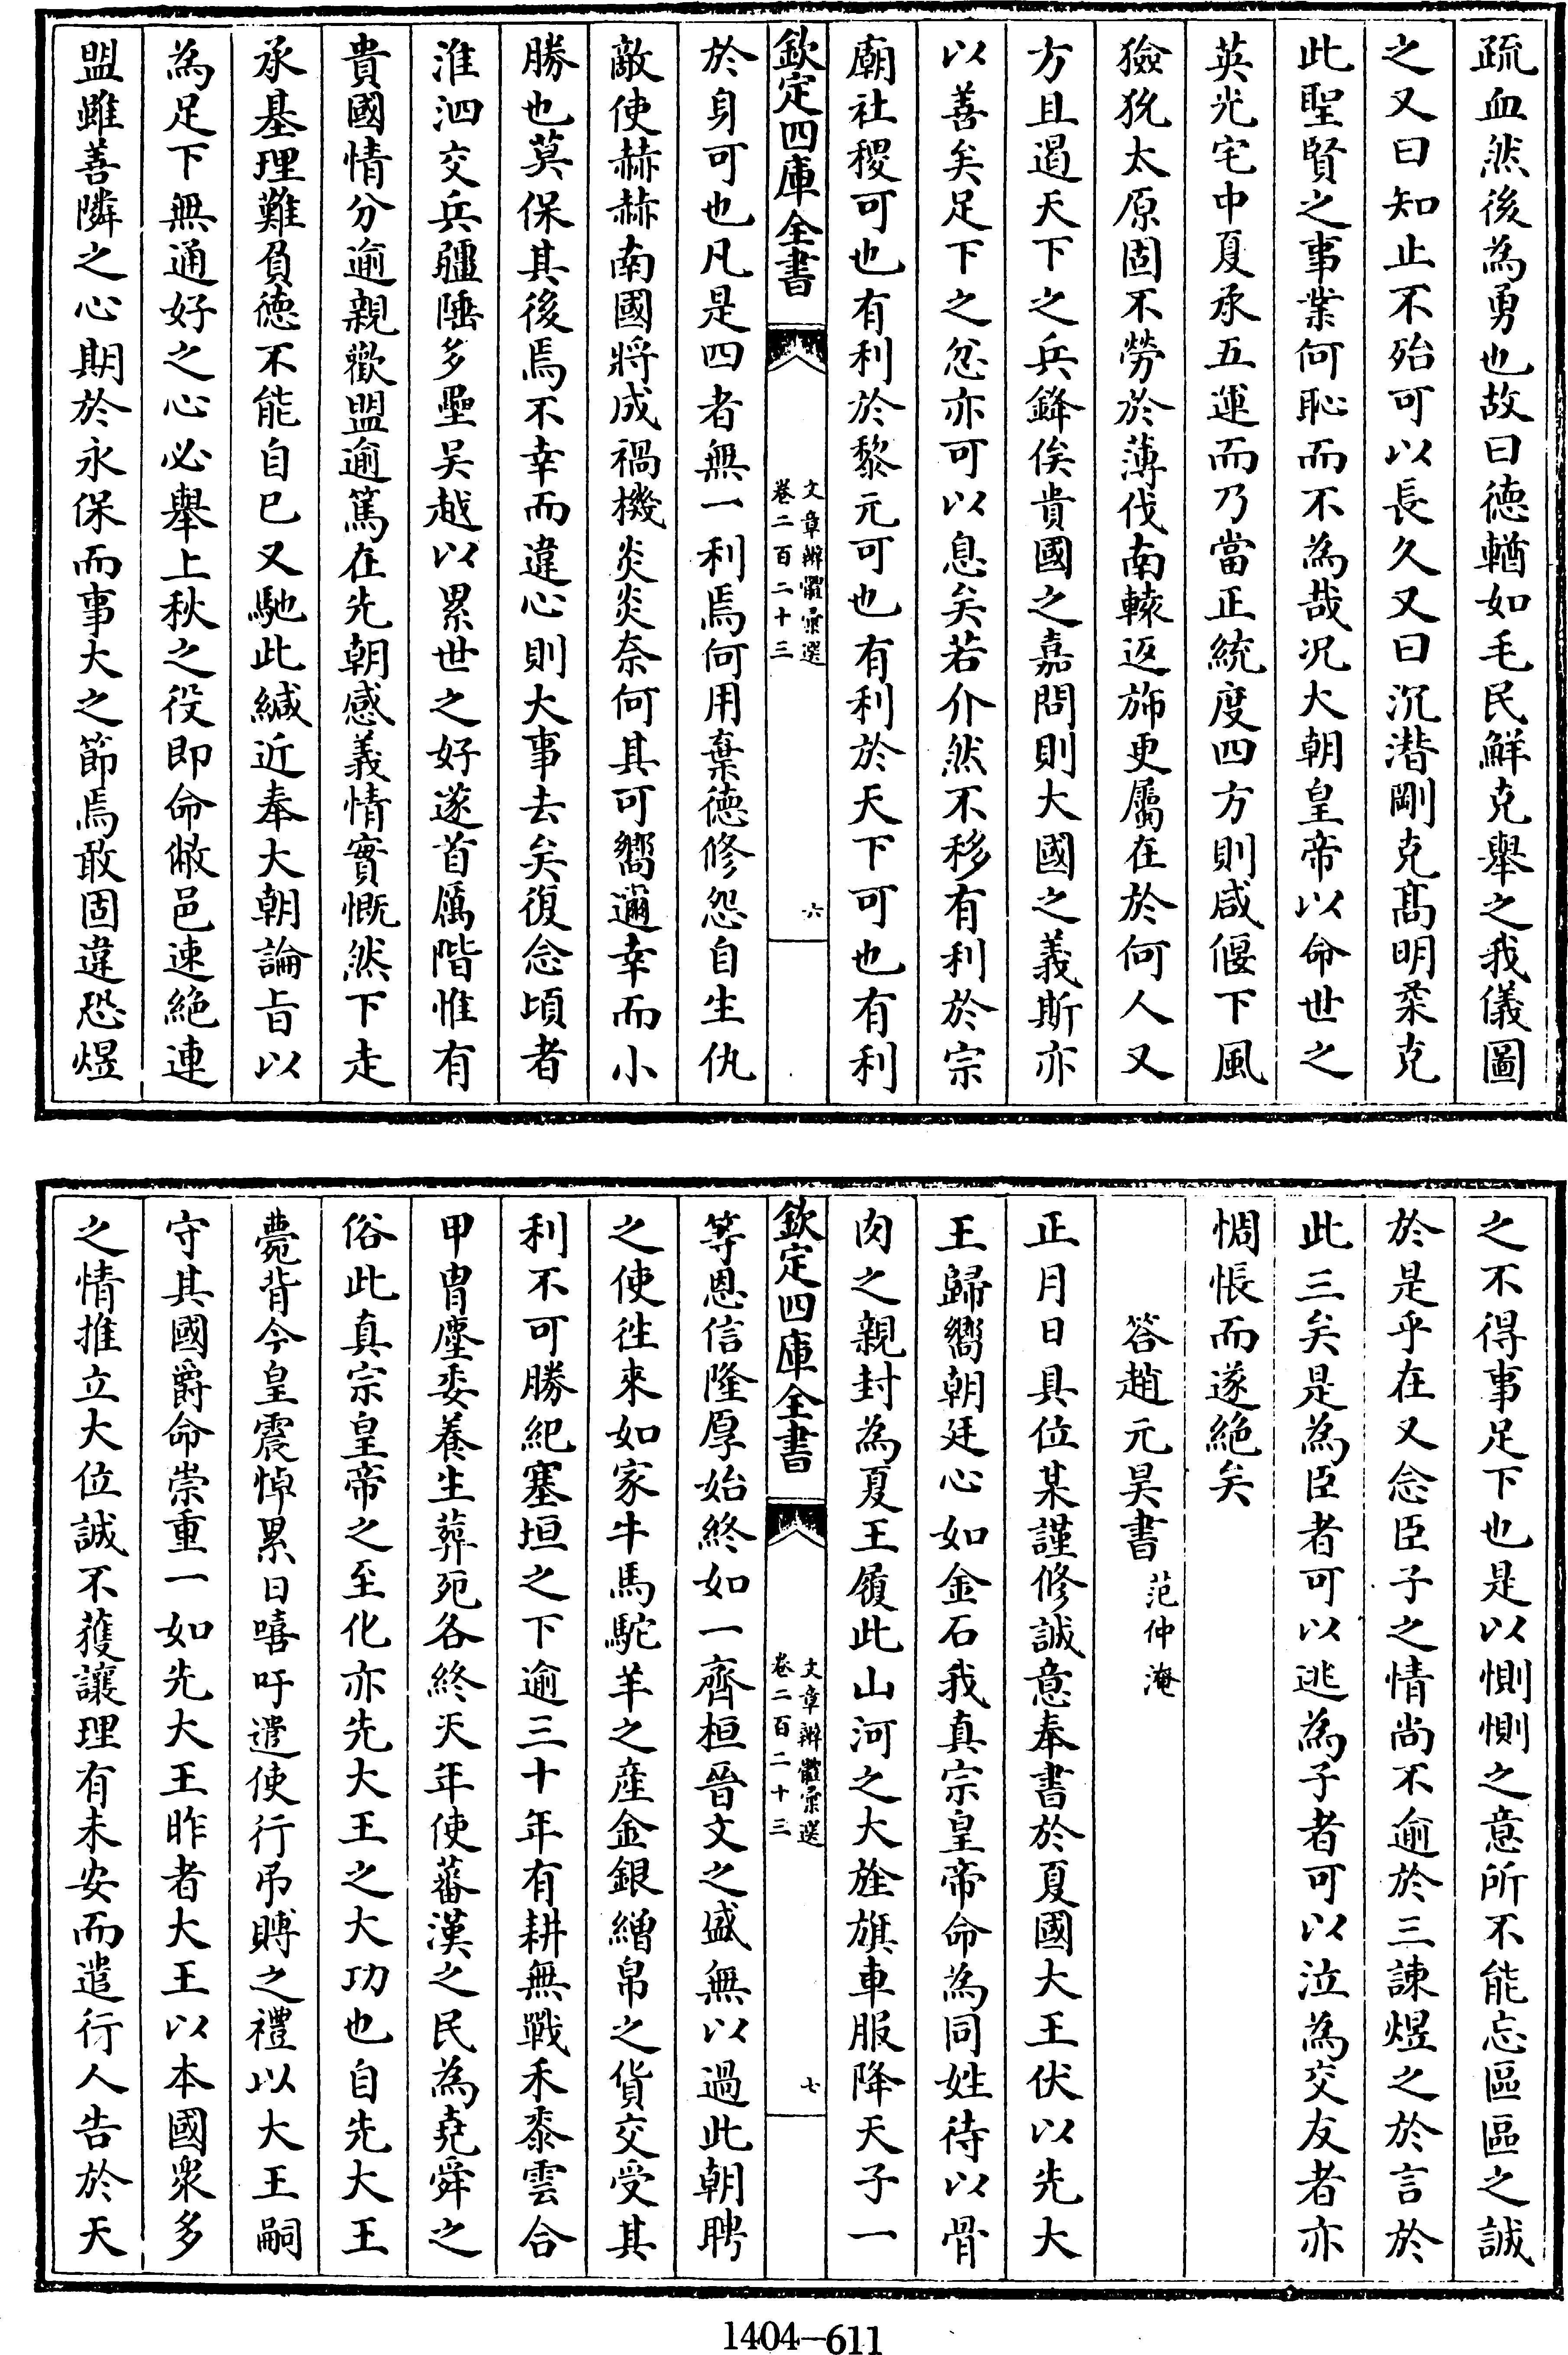 疏血然後為勇也故曰徳輶如毛民鮮克舉之我儀圖
之又曰知止不殆可以長久又曰沉潛剛克髙明柔克
此聖賢之事業何恥而不為哉況大朝皇帝以命世之
英光宅中夏承五運而乃當正統度四方則咸偃下風
獫狁太原固不勞於薄伐南轅返斾更屬在於何人又
方且遏天下之兵鋒俟貴國之嘉問則大國之義斯亦
以善矣足下之忿亦可以息矣若介然不移有利於宗
廟社稷可也有利於黎元可也有利於天下可也有利
欽定四庫全書
文章辨體彚選
卷二百二十三
六
於身可也凡是四者無一利焉何用棄徳修怨自生仇
敵使赫赫南國將成禍機炎炎奈何其可嚮邇幸而小
勝也莫保其後焉不幸而違心則大事去矣復念頃者
淮泗交兵疆陲多壘吳越以累世之好遂首厲階惟有
貴國情分逾親歡盟逾篤在先朝感義情實慨然下走
承基理難負徳不能自已又馳此緘近奉大朝諭旨以
為足下無通好之心必舉上秋之役即命敝邑速絶連
盟雖善隣之心期於永保而事大之節焉敢固違恐煜
之不得事足下也是以惻惻之意所不能忘區區之誠
於是乎在又念臣子之情尚不逾於三諫煜之於言於
此三矣是為臣者可以逃為子者可以泣為交友者亦
惆悵而遂絶矣
答趙元昊書 范仲淹
正月日具位某謹修誠意奉書於夏國大王伏以先大
王歸嚮朝廷心如金石我真宗皇帝命為同姓待以骨
肉之親封為夏王履此山河之大旌旗車服降天子一
欽定四庫全書
文章辨體彚選
卷二百二十三
七
等恩信隆厚始終如一齊桓晉文之盛無以過此朝聘
之使徃來如家牛馬駝羊之産金銀繒帛之貨交受其
利不可勝紀塞垣之下逾三十年有耕無戰禾黍雲合
甲胄塵委養生葬死各終天年使蕃漢之民為堯舜之
俗此真宗皇帝之至化亦先大王之大功也自先大王
薨背今皇震悼累日嘻吁遣使行弔賻之禮以大王嗣
守其國爵命崇重一如先大王昨者大王以本國衆多
之情推立大位誠不獲讓理有未安而遣行人告於天
1404-611